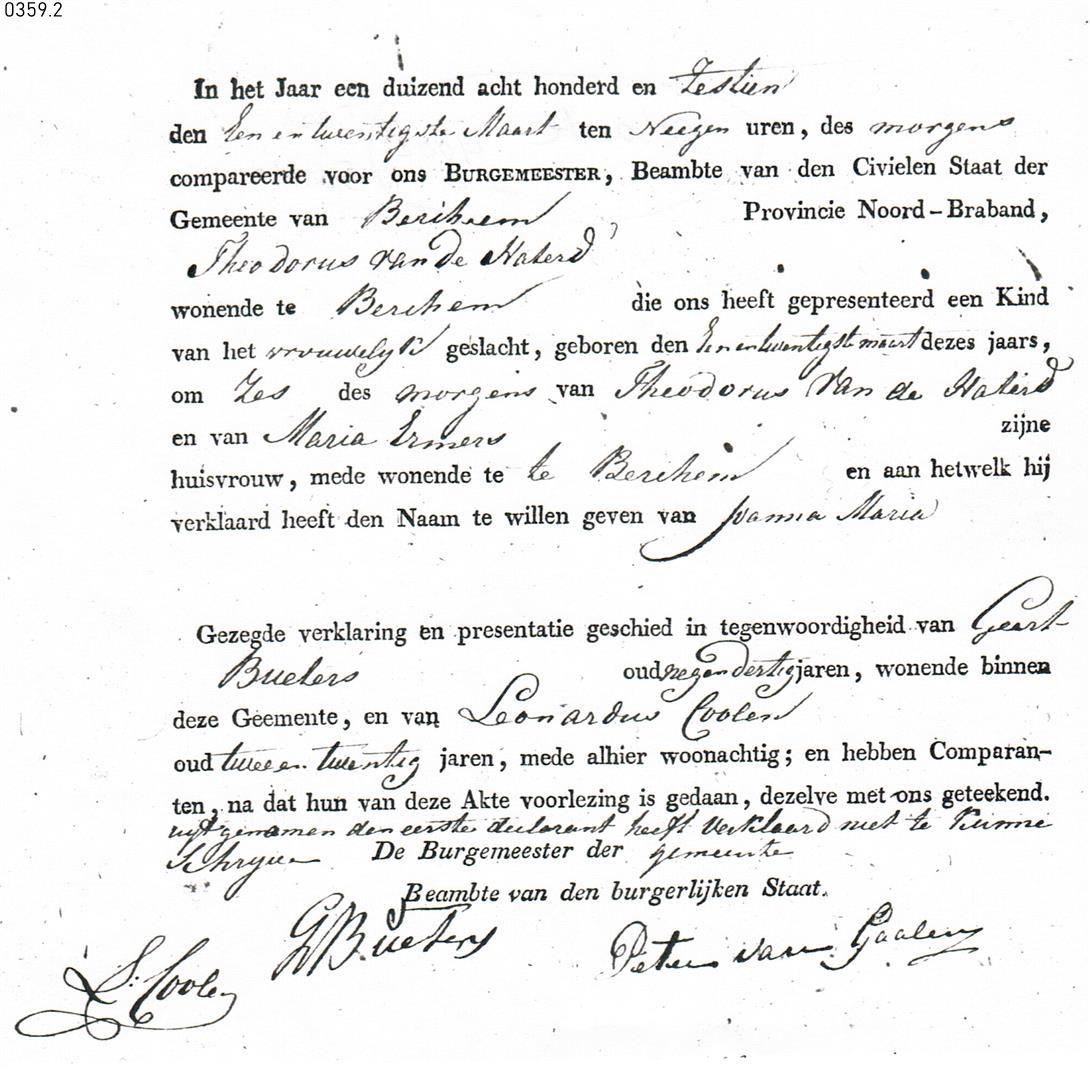 0359.2
In het Jaar een duizend acht honderd en Zestien
den Een en twentigste Maart ten Neegen uren, des morgens
compareerde voor ons BURGEMEESTER, Beambte van den Civielen Staat der
Gemeente van Berchem Provincie Noord-Braband,
Theodorus van de Haterd
wonende te Berchem die ons heeft gepresenteerd een Kind
van het vrouwelyk geslacht, geboren den Een en twentigste maart dezes jaars,
om Zes des morgens van Theodorus van de Haterd
en van Maria Ermers zijne
huisvrouw, mede wonende te te Berchem en aan hetwelk hij
verklaard heeft den Naam te willen geven van Joanna Maria
Gezegde verklaring en presentatie geschied in tegenwoordigheid van Geert
Bueters oud negendertig jaren, wonende binnen
deze Geemente, en van Leonardus Coolen
oud twee en twentig jaren, mede alhier woonachtig; en hebben Comparan-
ten, na dat hun van deze Akte voorlezing is gedaan, dezelve met ons geteekend.
uytgenomen den eerste declarant heeft verklaard niet te kunne
Schryve De Burgemeester der gemeente
Beambte van den burgerlijken Staat.
G Bueters
Peter van Gaalen
L. Coolen